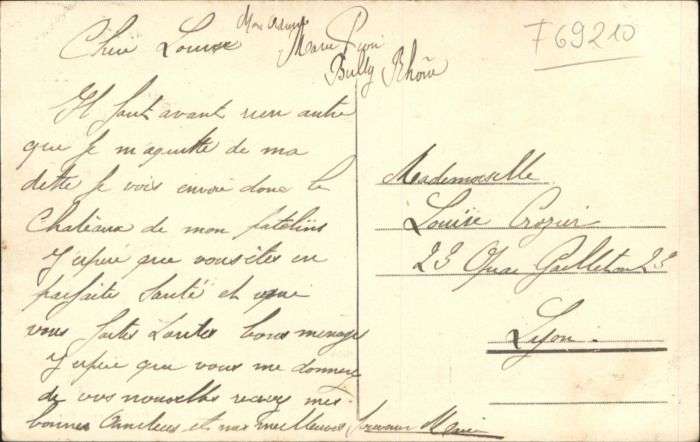 Chère Louise
Mon adresse
Marie
Bully Rhône
F69210
Il faut avant rien autre
que je m'aquitte de ma
dette je vois envoie donc le
Château de mon patelins
J'epère que vous êtes en
parfaite santé et que
vous faites toutes bons menage
J'epère que vous me donnere
de vos nouvelles recevez mes
bonnes amitiees et mes meilleures Marie
Mademoiselle
Louise Crozier
23 Quai Gailleton 23
Lyon.